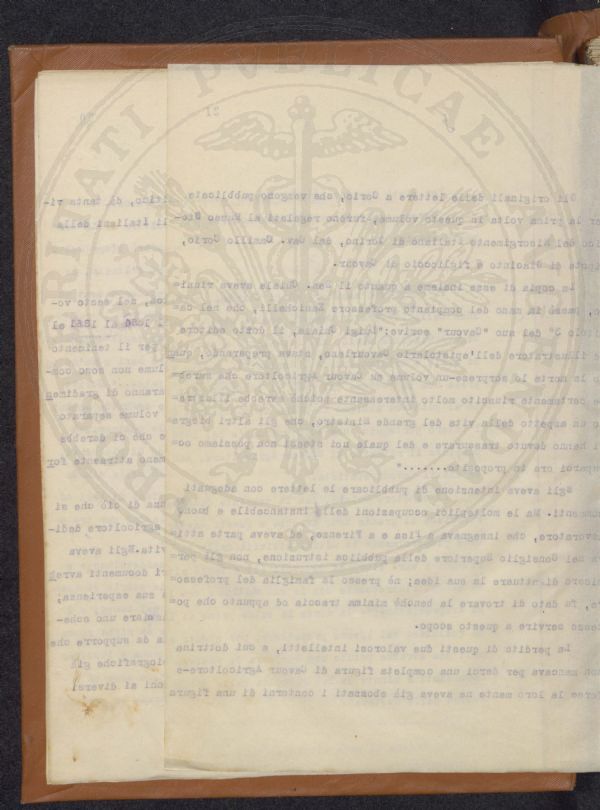 PRIVATI PVBLICAE
21
Gli originali delle lettere a Corio, che vengono pubblicate
per la prima volta in questo volume, furono regalati al Museo Sto-
rico del Risorgimento Italiano di Torino, dal Cav. Camillo Corio,
nipote di Giacinto e figlioccio di Cavour.
La copia di esse insieme a quanto il Sen. Chiala aveva riuni-
to, passò in mano del compianto professore Zanichelli, che nel ca-
pitolo 3 del suo "Cavour" scrive: "Luigi Chiala, il dotto editore
e illustratore dell'epistolario Cavouriano, stava preparando, quan
do la morte lo sorprese-un volume su Cavour Agricoltore che sareb=
be certamente riuscito molto interessante poichè avrebbe illustra=
to un aspetto della vita del grande ministro, che gli altri biogra
fi hanno dovuto trascurare e del quale noi stessi non possiamo oc=
cuparci ora in proposito......."
Egli aveva intenzione di pubblicare le lettere con adeguati
commenti. Ma le molteplici occupazioni dell' instancabile e buon
lavoratore, che insegnava a Pisa e a Firenze, ed aveva parte atti=
va nel Consiglio Superiore della pubblica istruzione, non gli per=
misero di attuare la sua idea; nè presso la famiglia del professo=
re, fu dato di trovare la benchè minima traccia od appunto che po=
tesse servire a questo scopo.
La perdita di questi due valorosi intelletti, a cui dottrina
non mancava per darci una completa figura di Cavour Agricoltore-e
forse la loro mente ne aveva già abozzati i contorni di una figura
litico, di tanta vi-
li Italiani della
nel sesto vo-
1850 al 1861 el
Per il tenicento
lume non sono com-
aranno di grattimg
volume separato
e che ci darebbe
meno attraente for
una di ciò che si
agricoltore dedi-
vita. Egli aveva
ri documenti avreb
sua esperienza;
da supporre che
iografiche già
oni si diversi